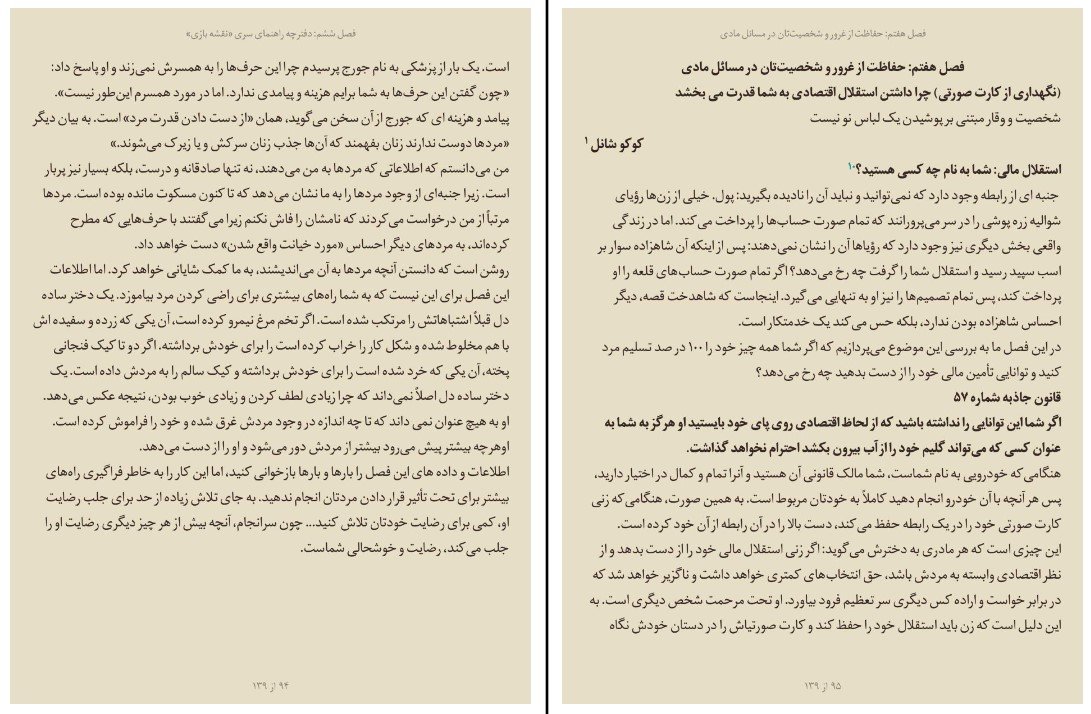 فصل ششم: دفترچه راهنمای سری «نقشه بازی»
است. یک بار از پزشکی به نام جورج پرسیدم چرا این حرف‌ها را به همسرش نمی‌زند و او پاسخ داد:
«چون گفتن این حرف‌ها به شما برایم هزینه و پیامدی ندارد. اما در مورد همسرم این‌طور نیست».
پیامد و هزینه ای که جورج از آن سخن می‌گوید، همان «از دست دادن قدرت مرد» است. به بیان دیگر
«مردها دوست ندارند زنان بفهمند که آن‌ها جذب زنان سرکش و یا زیرک می‌شوند.»
من می‌دانستم که اطلاعاتی که مردها به من می‌دهند، نه تنها صادقانه و درست، بلکه بسیار نیز پربار
است. زیرا جنبه‌ای از وجود مردها را به ما نشان می‌دهد که تا کنون مسکوت مانده بوده است. مردها
مرتباً از من درخواست می‌کردند که نامشان را فاش نکنم زیرا می‌گفتند با حرف‌هایی که مطرح
کرده‌اند، به مردهای دیگر احساس «مورد خیانت واقع شدن» دست خواهد داد.
روشن است که دانستن آنچه مردها به آن می‌اندیشند، به ما کمک شایانی خواهد کرد. اما اطلاعات
این فصل برای این نیست که به شما راه‌های بیشتری برای راضی کردن مرد بیاموزد. یک دختر ساده
دل قبلاً اشتباهاتش را مرتکب شده است. اگر تخم مرغ نیمرو کرده است، آن یکی که زرده و سفیده اش
با هم مخلوط شده و شکل کار را خراب کرده است را برای خودش برداشته. اگر دو تا کیک فنجانی
پخته، آن یکی که خرد شده است را برای خودش برداشته و کیک سالم را به مردش داده است. یک
دختر ساده دل اصلاً نمی‌داند که چرا زیادی لطف کردن و زیادی خوب بودن، نتیجه عکس می‌دهد.
او به هیچ عنوان نمی داند که تا چه اندازه در وجود مردش غرق شده و خود را فراموش کرده است.
اوهرچه بیشتر پیش می‌رود بیشتر از مردش دور می‌شود و او را از دست می‌دهد.
اطلاعات و داده های این فصل را بارها و بارها بازخوانی کنید، اما این کار را به خاطر فراگیری راه‌های
بیشتر برای تحت تأثیر قرار دادن مردتان انجام ندهید. به جای تلاش زیاده از حد برای جلب رضایت
او، کمی برای رضایت خودتان تلاش کنید... چون سرانجام، آنچه بیش از هر چیز دیگری رضایت او را
جلب می‌کند، رضایت و خوشحالی شماست.
۹۴ از ۱۳۹
فصل هفتم: حفاظت از غرور و شخصیت‌تان در مسائل مادی
فصل هفتم: حفاظت از غرور و شخصیت‌تان در مسائل مادی
(نگهداری از کارت صورتی) چرا داشتن استقلال اقتصادی به شما قدرت می بخشد
شخصیت و وقار مبتنی بر پوشیدن یک لباس نو نیست
کوکو شانل ۱
استقلال مالی: شما به نام چه کسی هستید؟۱۰
جنبه ای از رابطه وجود دارد که نمی‌توانید و نباید آن را نادیده بگیرید: پول. خیلی از زن‌ها رؤیای
شوالیه زره پوشی را در سر می‌پرورانند که تمام صورت حساب‌ها را پرداخت می‌کند. اما در زندگی
واقعی بخش دیگری نیز وجود دارد که رؤیاها آن را نشان نمی‌دهند: پس از اینکه آن شاهزاده سوار بر
اسب سپید رسید و استقلال شما را گرفت چه رخ می‌دهد؟ اگر تمام صورت حساب‌های قلعه را او
پرداخت کند، پس تمام تصمیم‌ها را نیز او به تنهایی می گیرد. اینجاست که شاهدخت قصه، دیگر
احساس شاهزاده بودن ندارد، بلکه حس می کند یک خدمتکار است.
در این فصل ما به بررسی این موضوع می‌پردازیم که اگر شما همه چیز خود را ۱۰۰ در صد تسلیم مرد
کنید و توانایی تأمین مالی خود را از دست بدهید چه رخ می‌دهد؟
قانون جاذبه شماره ۵۷
اگر شما این توانایی را نداشته باشید که از لحاظ اقتصادی روی پای خود بایستید او هرگز به شما به
عنوان کسی که می‌تواند گلیم خود را از آب بیرون بکشد احترام نخواهد گذاشت.
هنگامی‌که خودرویی به نام شماست، شما مالک قانونی آن هستید و آنرا تمام و کمال در اختیار دارید،
پس هر آنچه با آن خودرو انجام دهید کاملاً به خودتان مربوط است. به همین صورت، هنگامی‌که زنی
کارت صورتی خود را در یک رابطه حفظ می کند، دست بالا را در آن رابطه از آن خود کرده است.
این چیزی است که هر مادری به دخترش می‌گوید: اگر زنی استقلال مالی خود را از دست بدهد و از
نظر اقتصادی وابسته به مردش باشد، حق انتخاب‌های کمتری خواهد داشت و ناگزیر خواهد شد که
در برابر خواست و اراده کس دیگری سر تعظیم فرود بیاورد. او تحت مرحمت شخص دیگری است. به
این دلیل است که زن باید استقلال خود را حفظ کند و کارت صورتی‌اش را در دستان خودش نگاه
۹۵ از ۱۳۹